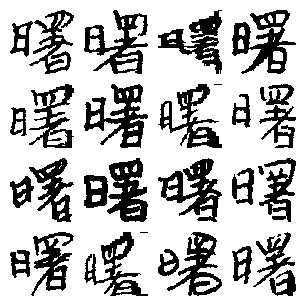 曙曙曙曙
曙曙曙曙
曙曙曙曙
曙曙曙曙